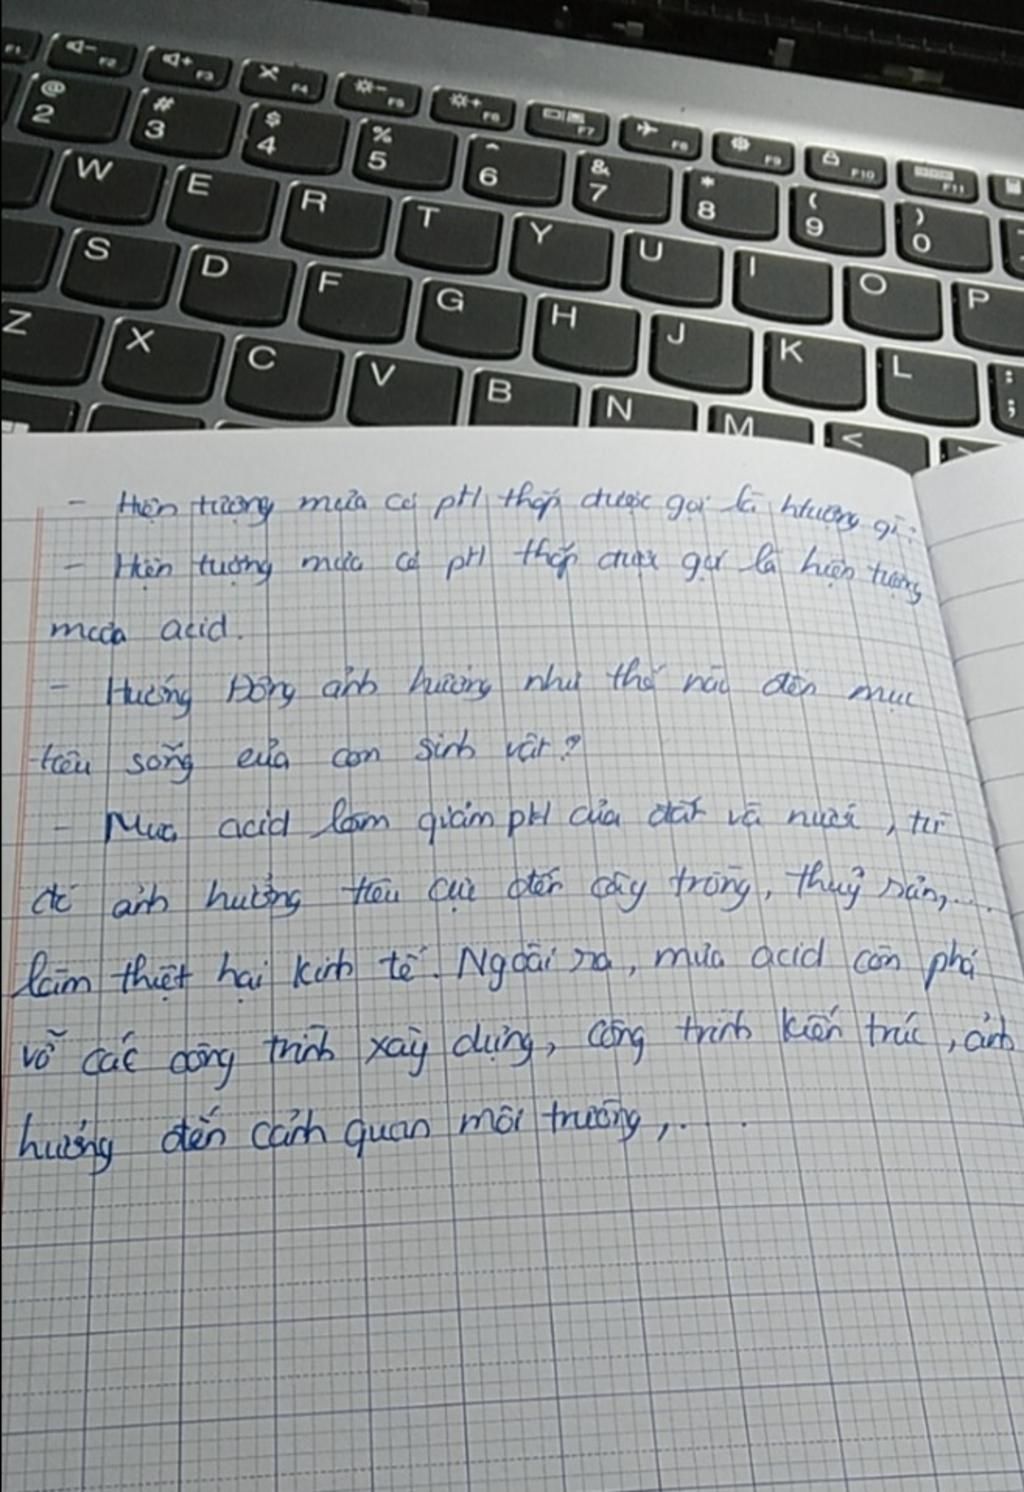 F1 F2 F3 F4 F5 F6 F7 F8 F9 F10 F11
@ 2 # 3 $ 4 % 5 ^ 6 & 7 * 8 ( 9 ) 0
W E R T Y U I O P
S D F G H J K L ; :
Z X C V B N M < >
- Hiện tượng mưa có pH thấp được gọi là htượng gì?
- Hiện tượng mưa có pH thấp được gọi là hiện tượng
mưa acid.
- Hướng Động ảnh hưởng như thế nào đến mục
tiêu sống của con sinh vật?
- Mưa acid làm giảm pH của đất và nước, từ
đó ảnh hưởng tiêu cực đến cây trồng, thuỷ sản,...
làm thiệt hại kinh tế. Ngoài ra, mưa acid còn phá
vỡ các công trình xây dựng, công trình kiến trúc, ảnh
hưởng đến cảnh quan môi trường,...